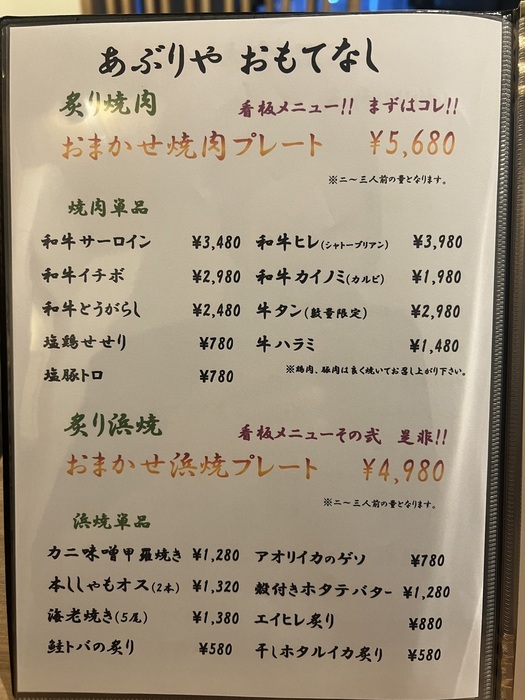 あぶりや おもてなし
炙り焼肉 看板メニュー!! まずはコレ!!
おまかせ焼肉プレート ¥5,680
※二〜三人前の量となります。
焼肉単品
和牛サーロイン ¥3,480 和牛ヒレ(シャトーブリアン) ¥3,980
和牛イチボ ¥2,980 和牛カイノミ(カルビ) ¥1,980
和牛とうがらし ¥2,480 牛タン(数量限定) ¥2,980
塩鶏せせり ¥780 牛ハラミ ¥1,480
塩豚トロ ¥780 ※鶏肉、豚肉は良く焼いてお召し上がり下さい。
炙り浜焼 看板メニューその弐 是非!!
おまかせ浜焼プレート ¥4,980
※二〜三人前の量となります。
浜焼単品
カニ味噌甲羅焼き ¥1,280 アオリイカのゲソ ¥780
本ししゃもオス(2本) ¥1,320 殻付きホタテバター ¥1,280
海老焼き(5尾) ¥1,380 エイヒレ炙り ¥880
鮭トバの炙り ¥580 干しホタルイカ炙り ¥580